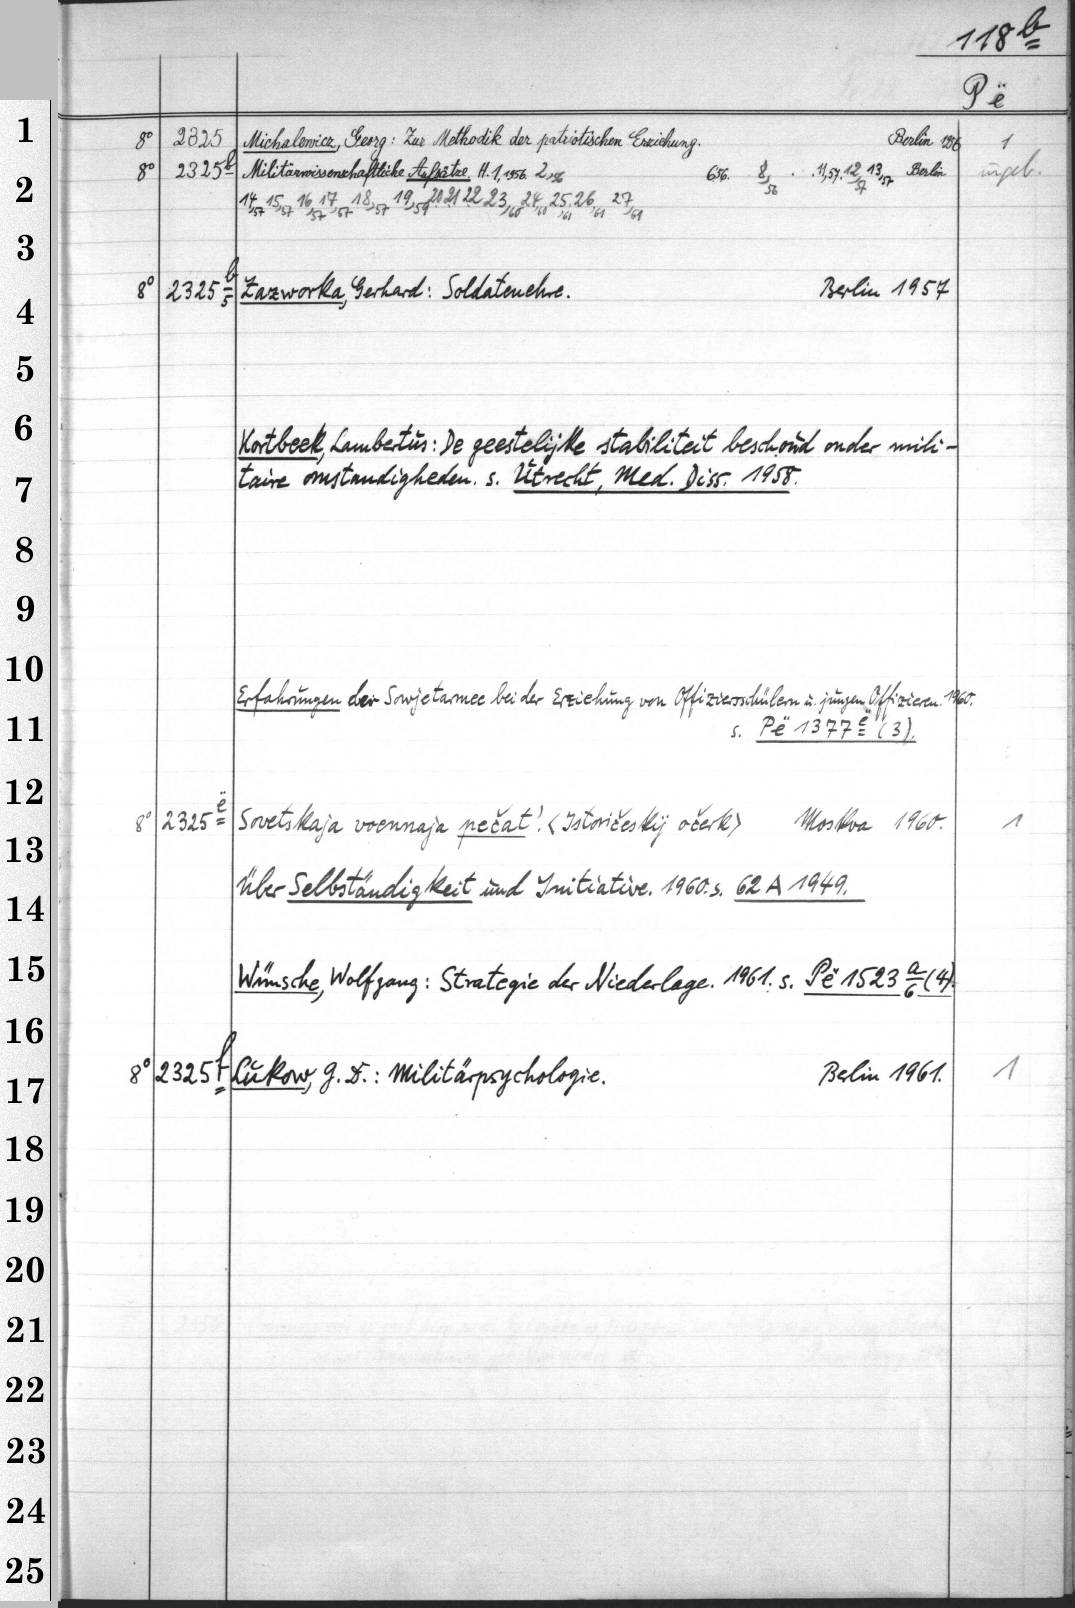 118 b
Pë
1
2
3
4
5
6
7
8
9
10
11
12
13
14
15
16
17
18
19
20
21
22
23
24
25
8° 2325 Michalewicz, Georg: Zur Methodik der patriotischen Erziehung. Berlin 1956 1
8° 2325 b Militärwissenschaftliche Aufsätze. H. 1,1956. 2,56 6,56. 8,56 . 11,57. 12,57 13,57 Berlin ungeb.
14,57 15,57 16,57 17,57 18,57 19,59 20 21 22 23,60 24,61 25,61 26,61 27,61
8° 2325 b/5 Zazworka, Gerhard: Soldatenehre. Berlin 1957
Kortbeek, Lambertus: De geestelijke stabiliteit beschoud onder mili-
taire omstandigheden. s. Utrecht, Med. Diss. 1958.
Erfahrungen der Sowjetarmee bei der Erziehung von Offiziersschülern u. jungen Offizieren. 1960.
s. Pë 1377 e (3).
8° 2325 ë Sovetskaja voennaja pečat'. <Istoričeskij očerk> Moskva 1960. 1
Über Selbständigkeit und Initiative. 1960. s. 62 A 1949.
Wünsche, Wolfgang: Strategie der Niederlage. 1961. s. Pë 1523 a/6 (4).
8° 2325 f Lukow, G. D.: Militärpsychologie. Berlin 1961. 1